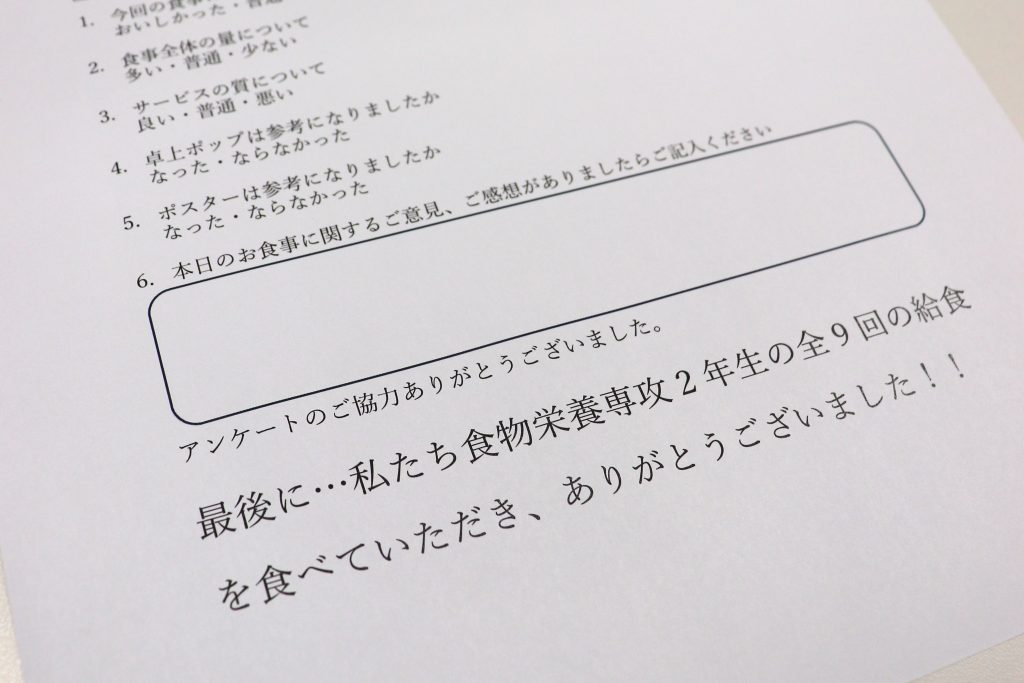 1. 今回の食事
おいしかった・普通
2. 食事全体の量について
多い・普通・少ない
3. サービスの質について
良い・普通・悪い
4. 卓上ポップは参考になりましたか
なった・ならなかった
5. ポスターは参考になりましたか
なった・ならなかった
6. 本日のお食事に関するご意見、ご感想がありましたらご記入ください
アンケートのご協力ありがとうございました。
最後に…私たち食物栄養専攻2年生の全9回の給食
を食べていただき、ありがとうございました!!